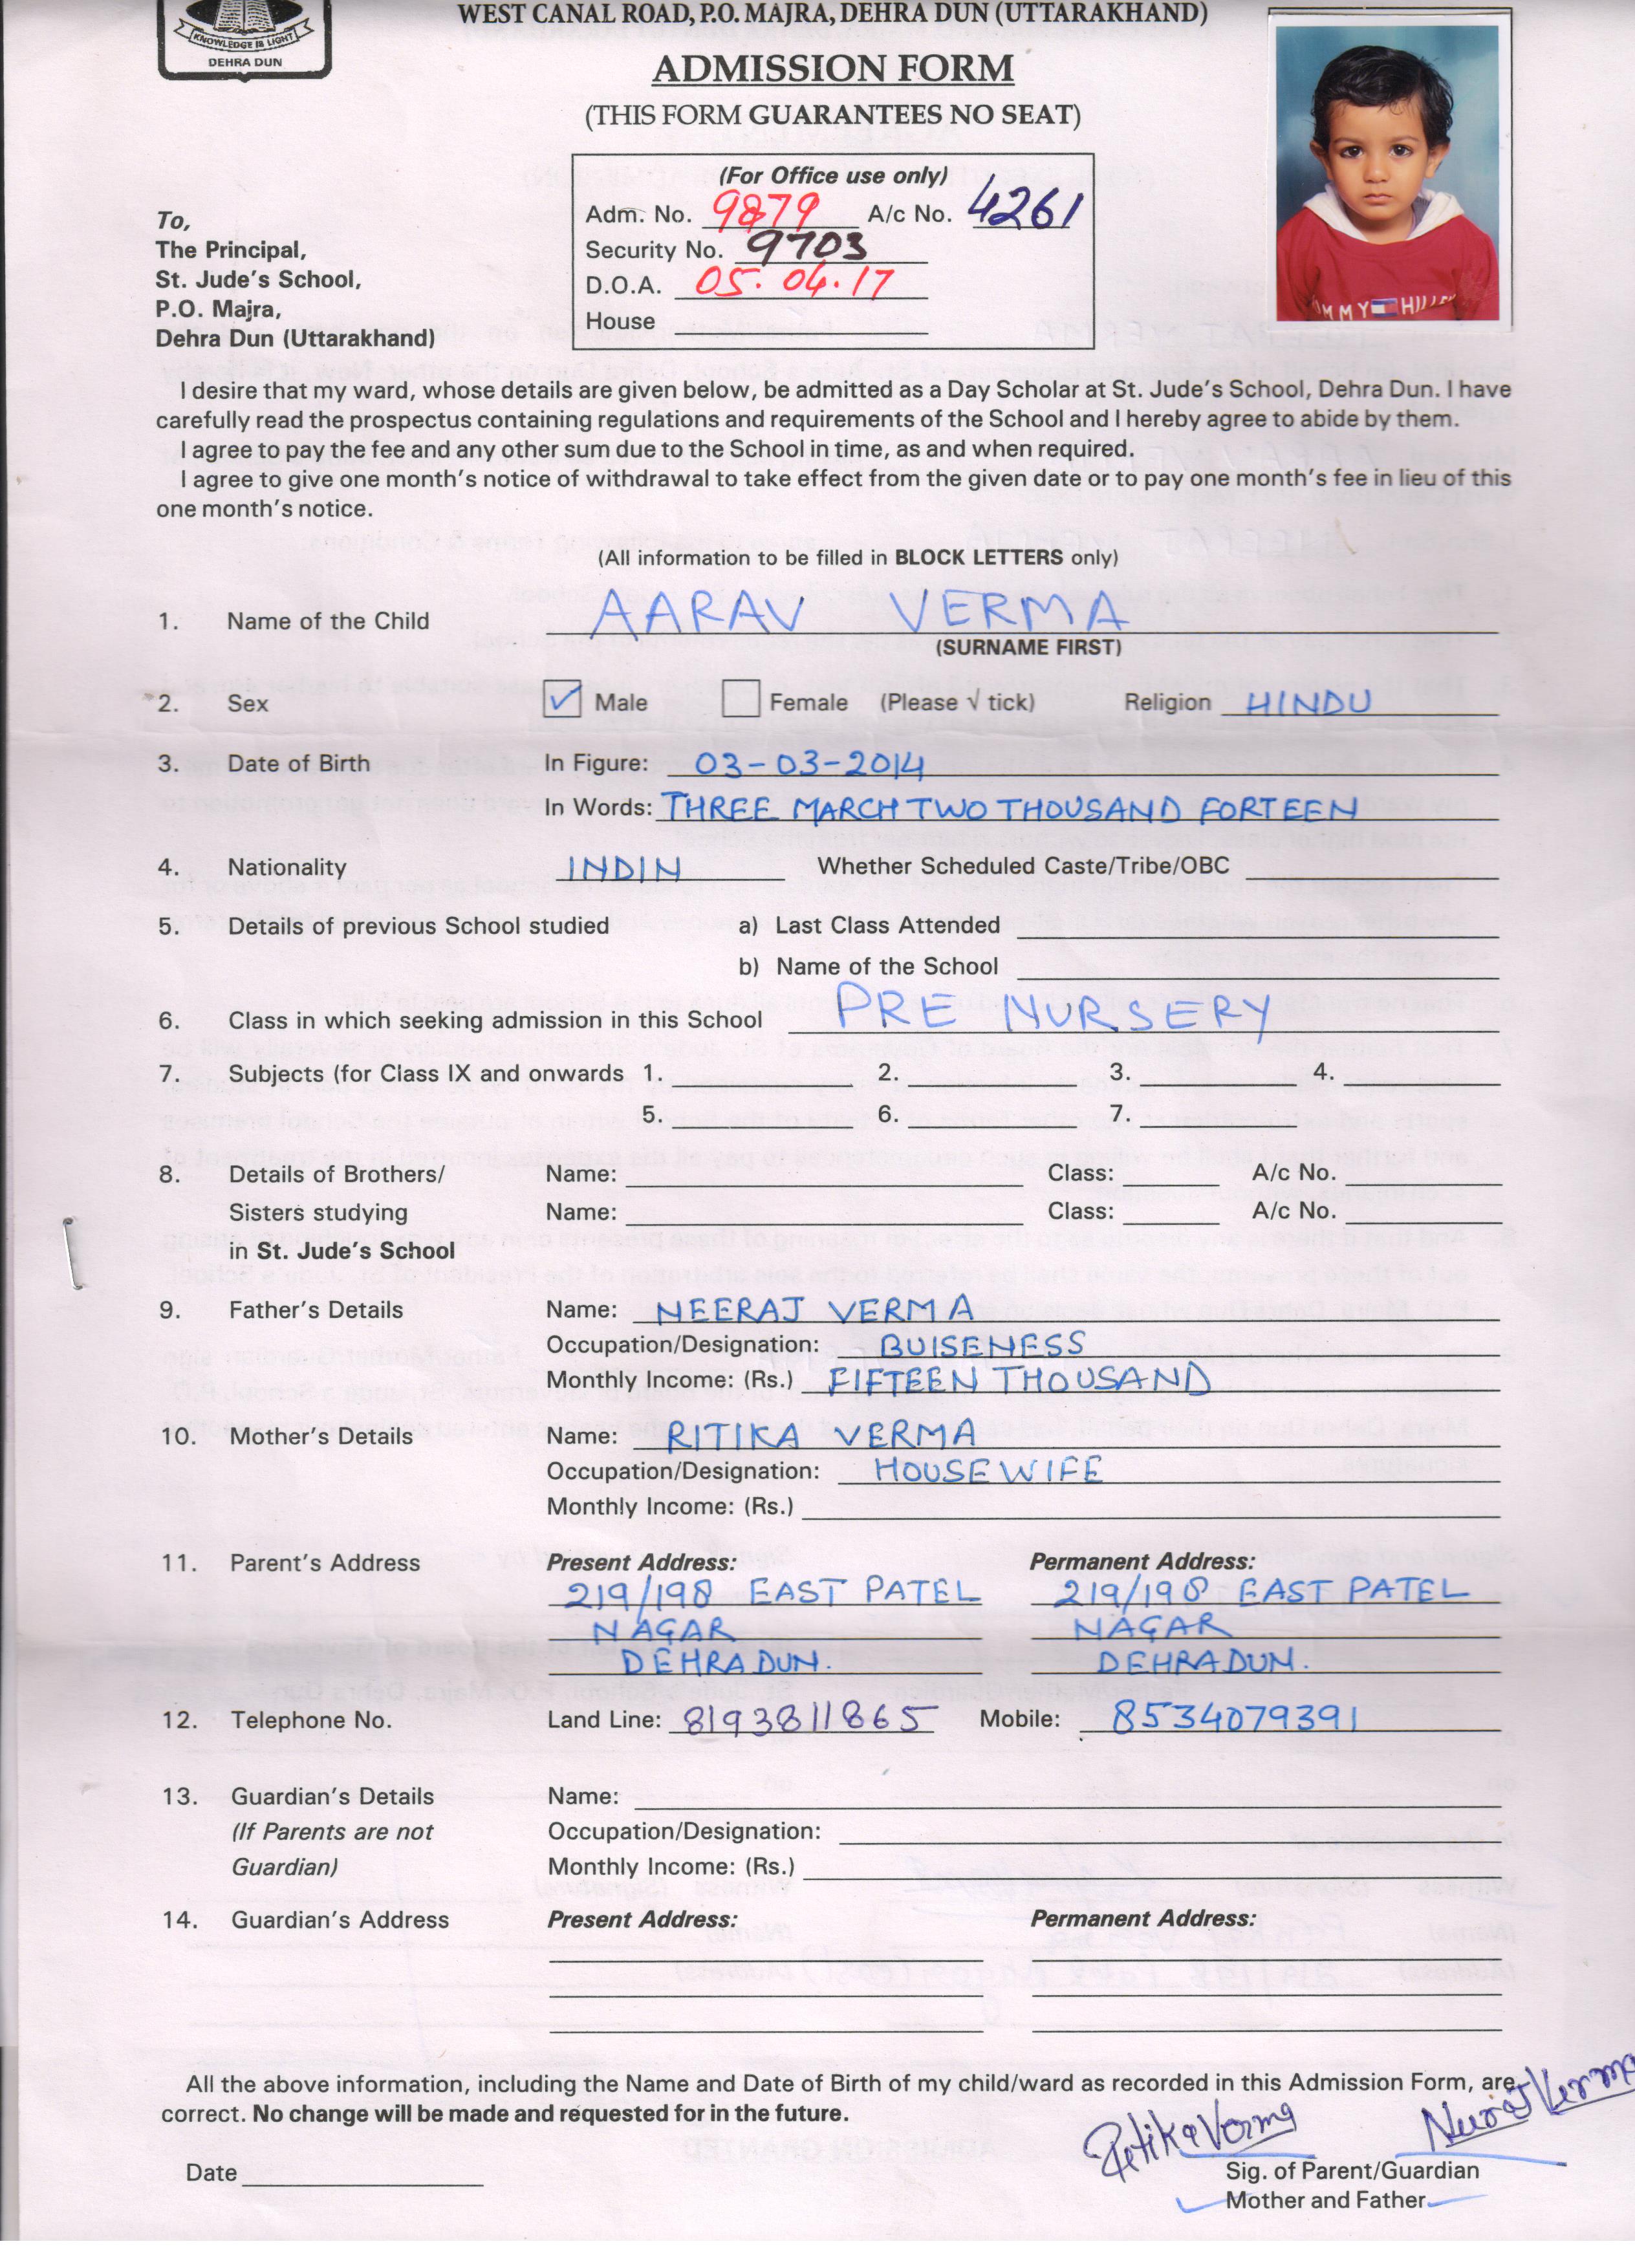 KNOWLEDGE IS LIGHT
DEHRA DUN
WEST CANAL ROAD, P.O. MAJRA, DEHRA DUN (UTTARAKHAND)
ADMISSION FORM
(THIS FORM GUARANTEES NO SEAT)
(For Office use only)
Adm. No. 9879 A/c No. 4261
Security No. 9703
D.O.A. 05.04.17
House
To,
The Principal,
St. Jude's School,
P.O. Majra,
Dehra Dun (Uttarakhand)
I desire that my ward, whose details are given below, be admitted as a Day Scholar at St. Jude's School, Dehra Dun. I have
carefully read the prospectus containing regulations and requirements of the School and I hereby agree to abide by them.
I agree to pay the fee and any other sum due to the School in time, as and when required.
I agree to give one month's notice of withdrawal to take effect from the given date or to pay one month's fee in lieu of this
one month's notice.
(All information to be filled in BLOCK LETTERS only)
1. Name of the Child AARAV VERMA
(SURNAME FIRST)
2. Sex ✓ Male Female (Please √ tick) Religion HINDU
3. Date of Birth In Figure: 03-03-2014
In Words: THREE MARCH TWO THOUSAND FORTEEN
4. Nationality INDIN Whether Scheduled Caste/Tribe/OBC
5. Details of previous School studied a) Last Class Attended
b) Name of the School
6. Class in which seeking admission in this School PRE NURSERY
7. Subjects (for Class IX and onwards 1. 2. 3. 4.
5. 6. 7.
8. Details of Brothers/ Name: Class: A/c No.
Sisters studying Name: Class: A/c No.
in St. Jude's School
9. Father's Details Name: NEERAJ VERMA
Occupation/Designation: BUISENESS
Monthly Income: (Rs.) FIFTEEN THOUSAND
10. Mother's Details Name: RITIKA VERMA
Occupation/Designation: HOUSE WIFE
Monthly Income: (Rs.)
11. Parent's Address Present Address: Permanent Address:
219/198 EAST PATEL 219/198 EAST PATEL
NAGAR NAGAR
DEHRADUN. DEHRADUN.
12. Telephone No. Land Line: 8193811865 Mobile: 8534079391
13. Guardian's Details Name:
(If Parents are not Occupation/Designation:
Guardian) Monthly Income: (Rs.)
14. Guardian's Address Present Address: Permanent Address:
All the above information, including the Name and Date of Birth of my child/ward as recorded in this Admission Form, are
correct. No change will be made and requested for in the future.
Ritika Verma Neeraj Verma
Date Sig. of Parent/Guardian
Mother and Father